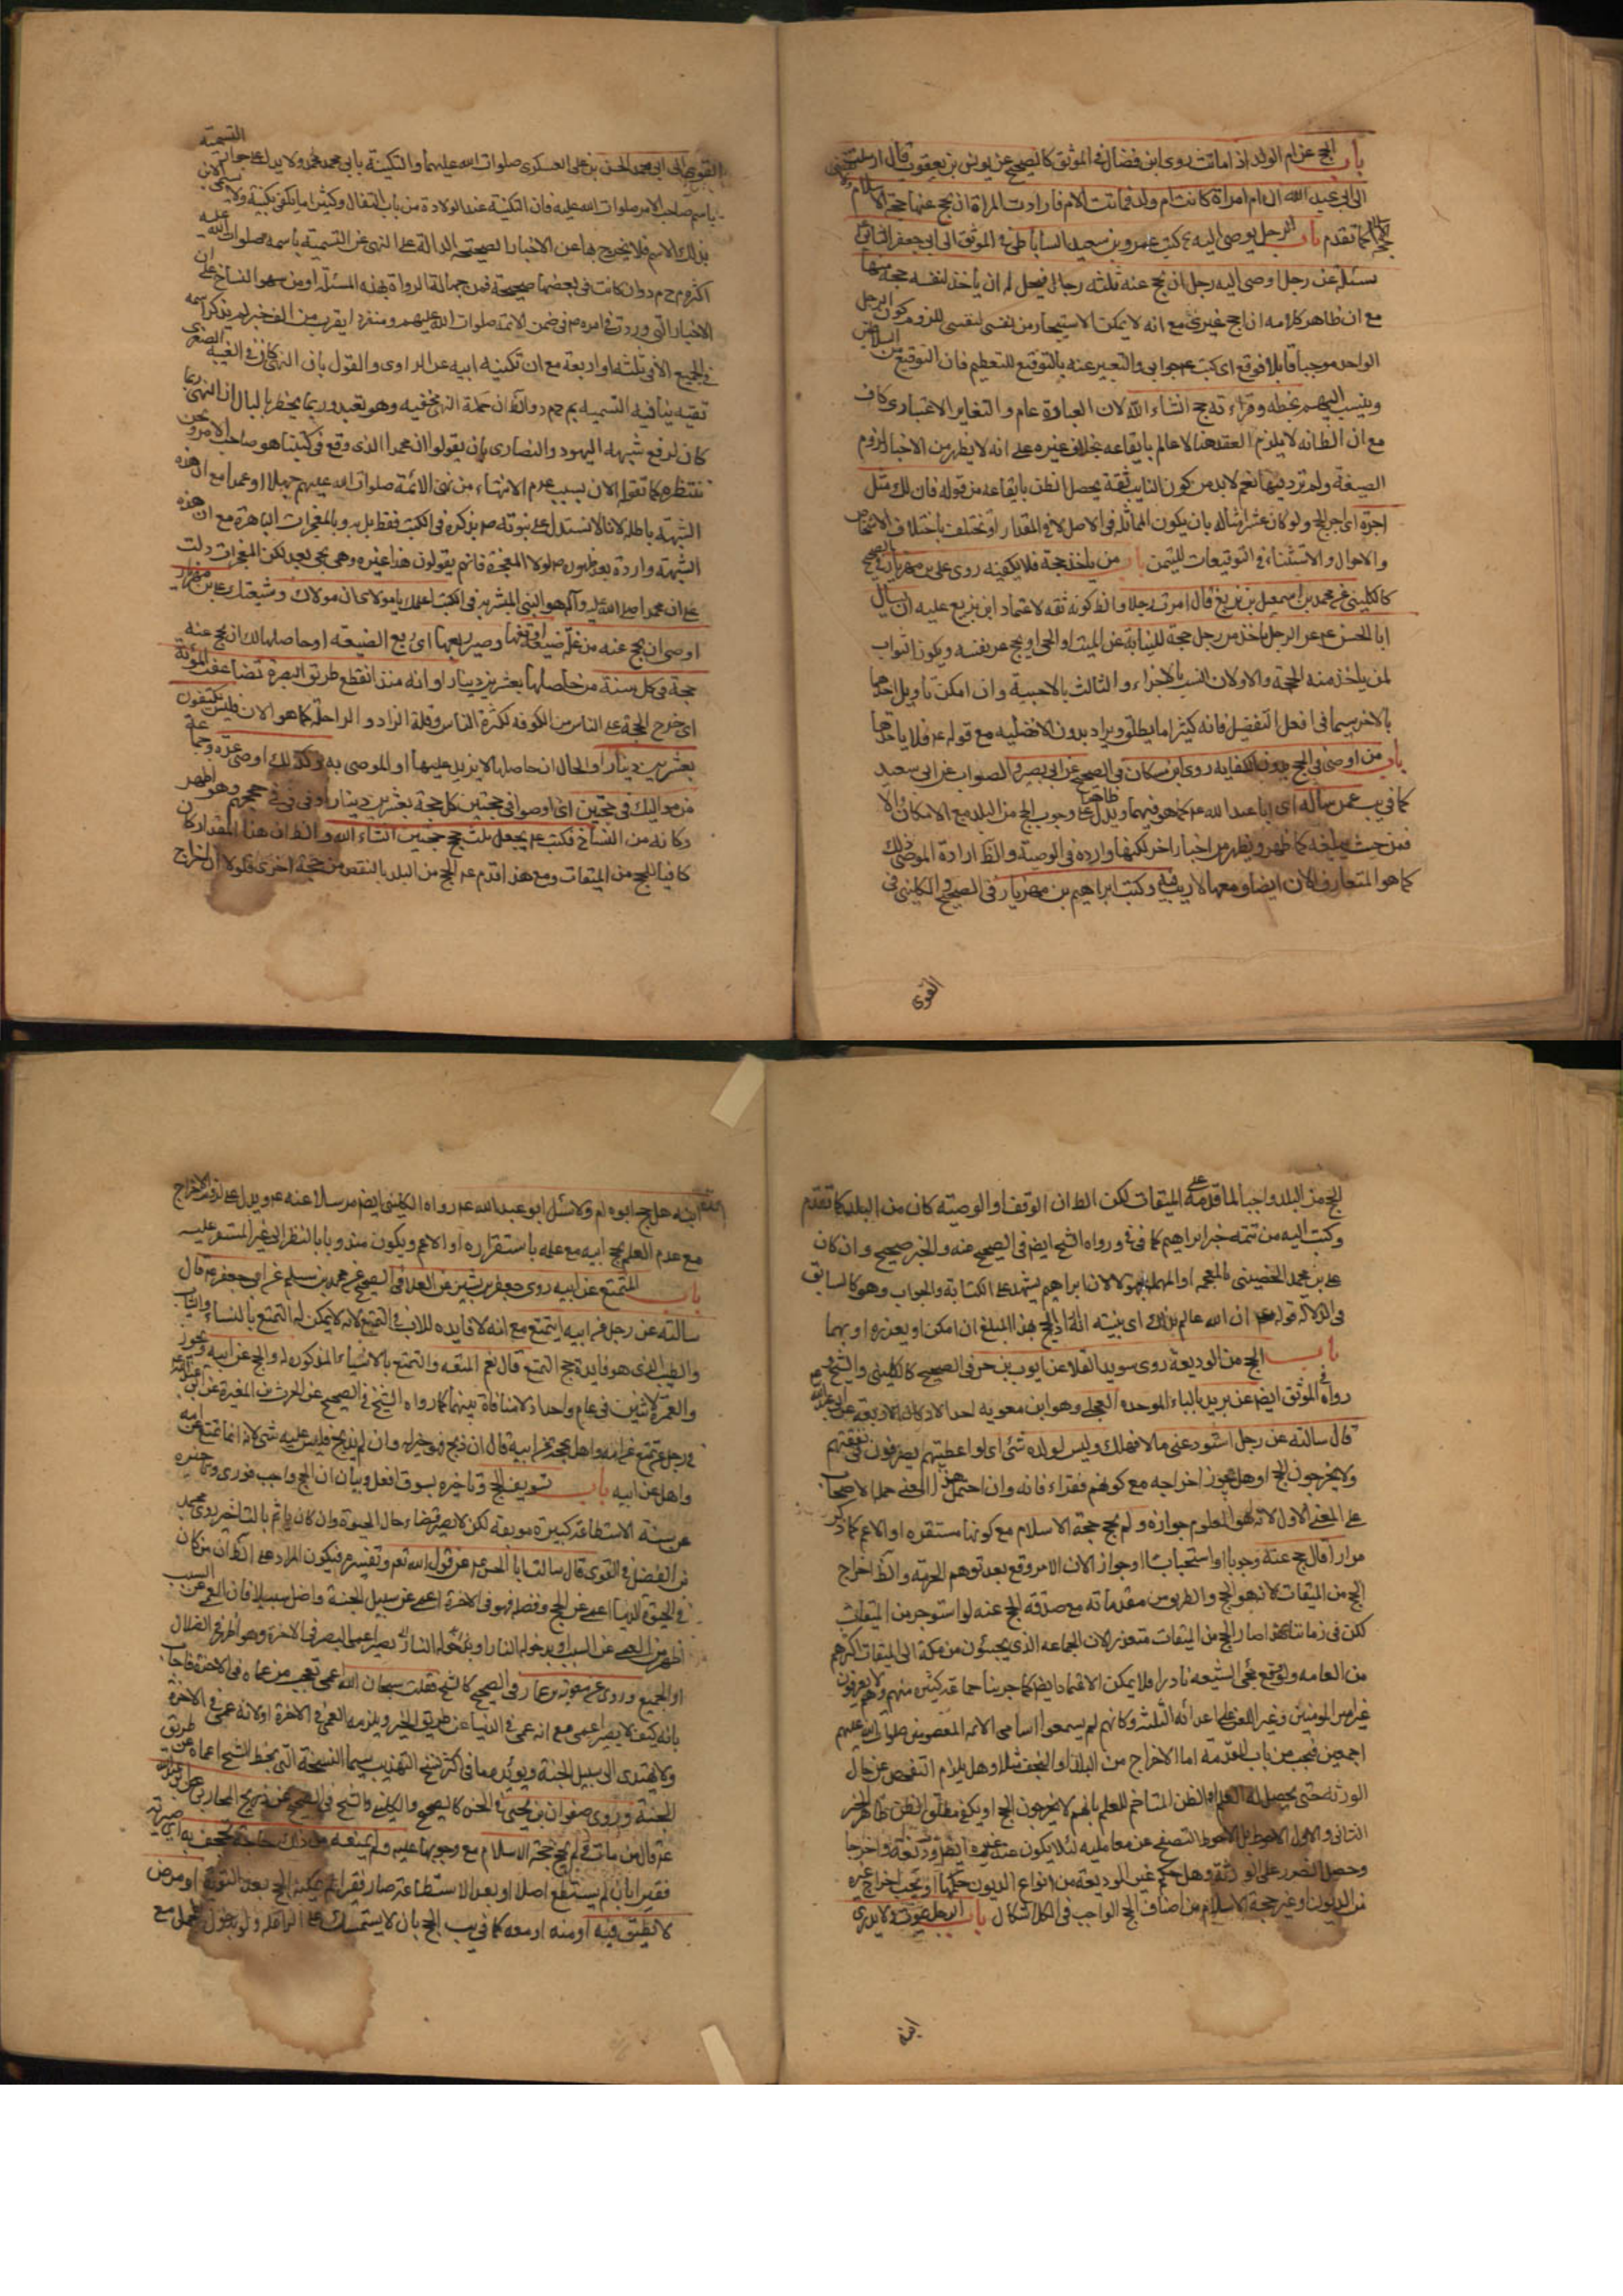 باب الحج عن ام الولد اذا ماتت روى ابن فضال فى الموثق كالصحيح عن يونس بن يعقوب قال ارسلت
الى ابى عبد الله ان ام امراة كانت ام ولد فماتت الام فارادت المراة ان يحج عنها حجة الاسلام
كما تقدم باب الرجل يوصى اليه كتب عمرو بن سعيد الساباطى فى الموثق الى ابى جعفر الثانى
يسئله عن رجل اوصى اليه رجل ان يحج عنه ثلثة رجال فيحل له ان ياخذ لنفسه حجة منها
مع ان ظاهر كلامه ان احج غيرى مع انه لا يمكن الاستيجار من نفسى لنفسى للزوم كون الرجل
الواحد موجبا قابلا فوقع اى كتب جوابى والتعبير عنه بالتوقيع للتعظيم فان التوقيع من السلاطين
وينسب اليهم بخطه وقراءته حج انشاء الله لان العبارة عام والتغاير الاعتبارى كاف
مع ان الظ انه لا يلزم العقد هنا لا عالم بايقاعه بخلاف غيره على انه لا يظهر من الاخبار لزوم
الصيغة ولم ترد فيها نعم لا بد من كون النايب ثقة يحصل الظن بايقاعه من قوله فان لك مثل
اجره اى اجر الحج ولو كان عشر امثاله بان يكون المماثلة فى الاصل لا فى المقدار او تختلف باختلاف الاشخاص
والاحوال والاستثناء فى التوقيعات للتيمن باب من ياخذ حجة فلا يكفيه روى على بن مهزيار فى الصحيح
كالكلينى عن محمد بن اسمعيل بن بزيع قال امرت رجلا والظ كونه ثقة لاعتماد ابن بزيع عليه ان يسال
ابا الحسن عن الرجل ياخذ من رجل حجة للنيابة عن الميت او الحى او يحج عن نفسه ويكون الثواب
لمن ياخذ منه الحجة والاولان انسب بالاجزاء والثالث بالاجنبية وان امكن تاويل احدهما
بالاخر سيما فى افعل التفضيل فانه كثيرا ما يطلق ويراد بدون الافضليه مع قوله فلا ياخذها
باب من اوصى فى الحج بدون الكفاية روى ابن مسكان فى الصحيح عن ابى بصير والصواب عن ابى سعيد
كما فى يب عمن ساله اى ابا عبد الله كما هو فيهما ويدل ظاهرا على وجوب الحج من البلد مع الامكان والا
فمن حيث يبلغه كما ظهر ويظهر من اخبار اخر لكنها وارده فى الوصية والظ ارادة الموصى ذلك
كما هو المتعارف الان ايضا ومعها لا ريب فيه وكتب ابراهيم بن مهزيار فى الصحيح والكلينى فى
القوى
القوى الى ابى محمد الحسن بن على العسكرى صلوات الله عليهما والتكنية بابى محمد ولا يدل على جواز التسمية
باسم صاحب الامر صلوات الله عليه فان التكنية عند الولادة من باب التفال وكثيرا ما يكنى بكنية ولا يسمى الابن
بذلك الاسم فلا يخرج بها عن الاخبار الصحيحه الدالة على النهى عن التسمية باسمه صلوات الله عليه
اكثره م ح م د وان كانت فى بعضها صحيحة فمن جهالة الرواة بهذه المسئلة او من سهو النساخ على ان
الاخبار التى وردت فى امره فى ضمن الائمة صلوات الله عليهم ومنفردا يقرب من الف خبر لم يذكر اسمه
فى الجميع الا فى ثلثة او اربعة مع ان تكنية ابيه عن الراوى والقول بان النهى كان فى الغيبة الصغرى
تقية ينافيه التسمية بم ح م د والظ ان حملة النهى مخفيه وهو تعبد وربما يخطر بالبال ان النهى ربما
كان لرفع شبهة اليهود والنصارى بان يقولوا ان محمدا الذى وقع فى كتبنا هو صاحب الامر ونحن
ننتظره كما تقوله الان بسبب عدم الانتهاء من نهى الائمة صلوات الله عليهم جهلا او عمدا مع ان هذه
الشبهة باطله لانا لا نستدل على نبوته بذكره فى الكتب فقط بل به وبالمعجزات الباهرة مع ان هذه
الشبهة واردة بعد ظهوره لولا المعجزة فانهم يقولون هذا غيره وهو يجى بعد لكن المعجزات دلت
على ان محمدا صلى الله عليه وآله هو النبى المبشر به فى الكتب اعلمك يا مولاى ان مولاك وشيعتك على بن مهزيار
اوصى ان يحج عنه من غلة ضيعة اوقفها وصير ربعها اى ربع الضيعه او حاصلها لك ان يحج عنه
حجة فى كل سنة من حاصلها بعشرين دينارا وانه منذ انقطع طريق البصرة تضاعفت المؤنة
اى خرج الحجة على الناس من الكوفه لكثرة الناس وقلة الزاد والراحلة كما هو الان فليس يكتفون
بعشرين دينارا والحال ان حاصلها لا يزيد عليها او الموصى به وكذلك اوصى عدة
من مواليك فى حجتين اى اوصوا فى حجتين كل حجة بعشرين دينارا وفى فى حججهم وهو اظهر
وكانه من النساخ فكتب يجعل ثلث حجج حجتين انشاء الله والظ ان هذا المقدار كان
كافيا للحج من الميقات ومع هذا قدم الحج من البلد بالنقص من حجة اخرى فلولا ان اخراج
الحج من البلد واجبا لما قدمه على الميقات لكن الظ ان الوقف او الوصية كان من البلد كما تقدم
وكتب اليه من تتمه خبر ابراهيم كما فى ورواه الشيخ ايض فى الصحيح عنه والخبر صحيح وان كان
على بن محمد الحضينى بالمعجمة او المهملة مجهولا لان ابراهيم يشهد على الكتابة والجواب وهو كالسابق
فى الدلالة قوله ان الله عالم بذلك اى بنيته انه اذا يحج بهذا المبلغ ان امكن او يعذره او بهما
باب الحج من الوديعة روى سويد القلا عن ايوب بن حر فى الصحيح كالكلينى والشيخ
رواه فى الموثق ايض عن بريد بالباء الموحدة العجلى وهو ابن معويه احد الاركان الاربعة عن ابى عبد الله
قال سالته عن رجل استودعنى مالا فهلك وليس لولده شئ اى لو اعطيتهم يصرفون فى نفقتهم
ولا يخرجون الحج او هل يجوز اخراجه مع كونهم فقراء فانه وان احتمل هذا المعنى حمله الاصحاب
على المعنى الاول لانه هو المعلوم جوازه ولم يحج حجة الاسلام مع كونها مستقره او الاعم كما ذكر
مرارا قال حج عنه وجوبا او استحبابا او جواز لان الامر وقع بعد توهم الحرمة والظ اخراج
الحج من الميقات لانه هو الحج والطريق من مقدماته مع صدقه الحج عنه لو استوجر من الميقات
لكن فى زماننا هذا صار الحج من الميقات متعذر لان الجماعة الذى يجيئون من مكة الى الميقات اكثرهم
من العامه ولو وقع مجئ الشيعه نادرا فلا يمكن الاعتماد ايضا كما جربنا جماعة كثيره منهم وهم لا يعرفون
غير امير المومنين وغير اللعن على اعدائه الثلثة وكانهم لم يسمعوا اسامى الائمه المعصومين صلوات الله عليهم
اجمعين فيجب من باب المقدمة اما الاخراج من البلد او النجف مثلا وهل يلزم التفحص عن حال
الورثة حتى يحصل له العلم او الظن المتاخم للعلم بانهم لا يخرجون الحج او يكفى مطلق الظن ظاهر الخبر
الثانى والاول الاحوط بل الاحوط التصفح عن معامليه لئلا يكون عند غيره ايضا وديعة واخرجا
وحصل الضرر على الورثة وهل حكم غير الوديعة من انواع الديون حكمها او يجب اخراج غيره
من الديون او غير حجة الاسلام من اصناف الحج الواجب فى الكل اشكال باب الرجل يموت ولا يدرى
ابنه
ابنه هل حج ابوه ام لا وسئل ابو عبد الله رواه الكلينى ايض مرسلا عنه ويدل على لزوم الاخراج
مع عدم العلم بحج ابيه مع علمه باستقراره او الاعم ويكون مندوبا بالنظر الى غير المستقر عليه
باب المتمتع عن ابيه روى جعفر بن بشير عن العلا فى الصحيح عن محمد بن مسلم عن ابى جعفر قال
سالته عن رجل عن ابيه ايتمتع مع انه لا فايده للاب فى التمتع لانه لا يمكن له التمتع بالنساء والثياب
والطيب الذى هو فايدة حج التمتع قال نعم المتعه والتمتع بالاشياء المذكوره له والحج عن ابيه
والعمرة لاثنين فى عام واحد اذ لا منافاة بينهما كما رواه الشيخ فى الصحيح عن الحرث بن المغيرة عن ابى عبد الله
فى رجل تمتع عن امه واهل بحجه عن ابيه قال ان ذبح فهو خير له وان لم يذبح فليس عليه شئ لانه انما تمتع عن امه
واهل عن ابيه باب تسويف الحج وتاخيره بسوف افعل وبيان ان الحج واجب فورى وتاخيره
عن سنة الاستطاعة كبيرة موبقة لكن لا يصير قضاء حال الحيوة وان كان ياثم بالتاخير روى محمد
بن الفضيل فى القوى قال سالت ابا الحسن عن قول الله تعم وتفسيره فيكون المراد ان من كان
فى الحيوة الدنيا اعمى عن الحج وفضله فهو فى الاخرة اعمى عن سبيل الجنة واضل سبيلا فان العمى عن السبب
اظهر من العمى عن السبب او بدخوله النار بصير اعمى البصر فى الاخرة وهو اظهر فى الضلال
او الجميع وروى عن معوية بن عمار فى الصحيح كالشيخ فقلت سبحان الله اعمى تعجب من عماه فى الاخرة فاجاب
بانه كيف لا يصير اعمى مع انه عمى فى الدنيا عن طريق الخير ويلزمه العمى فى الاخرة او لانه عمى فى الاخرة
ولا يهتدى الى سبيل الجنة ويؤيده ما فى اكثر نسخ التهذيب سيما النسخة التى بخط الشيخ اعماه عن طريق
الجنة وروى صفوان بن يحيى فى الحسن كالصحيح والكلينى والشيخ فى الصحيح عن ذريح المحاربى عن ابى عبد الله
قال من مات ولم يحج حجة الاسلام مع وجوبها عليه ولم يمنعه من ذلك حاجة تجحف به اى صيرته
فقيرا بان لم يستطع اصلا او بعد الاستطاعة صار فقيرا لم يمكنه الحج بعد التوبة او مرض
لا يطيق فيه او منه او معه كما فى يب الحج بان لا يستمسك على الراحلة ولو بدخول المحمل مع